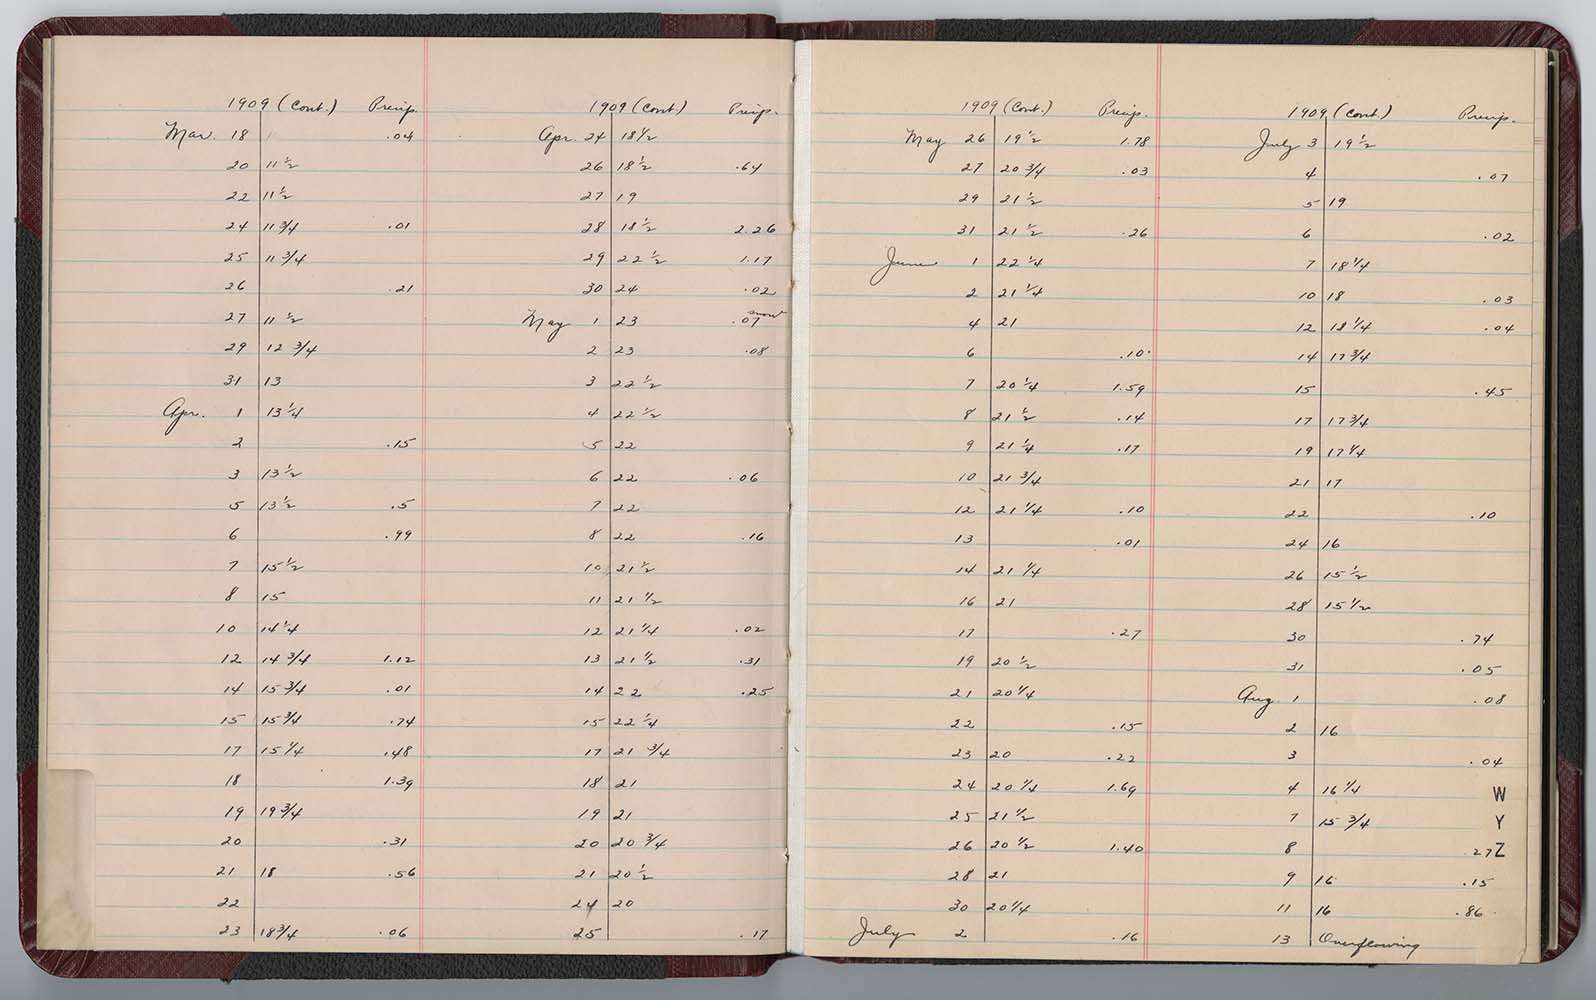 1909 (Cont.) Precip.
Mar. 18 .04
20 11 1/2
22 11 1/2
24 11 3/4 .01
25 11 3/4
26 .21
27 11 1/2
29 12 3/4
31 13
Apr. 1 13 1/4
2 .15
3 13 1/2
5 13 1/2 .5
6 .99
7 15 1/2
8 15
10 14 1/4
12 14 3/4 1.12
14 15 3/4 .01
15 15 3/4 .74
17 15 1/4 .48
18 1.39
19 19 3/4
20 .31
21 18 .56
22
23 18 3/4 .06
1909 (Cont.) Precip.
Apr. 24 18 1/2
26 18 1/2 .64
27 19
28 18 1/2 2.26
29 22 1/2 1.17
30 24 .02
May 1 23 .07 snow
2 23 .08
3 22 1/2
4 22 1/2
5 22
6 22 .06
7 22
8 22 .16
10 21 1/2
11 21 1/2
12 21 1/4 .02
13 21 1/2 .31
14 22 .25
15 22 1/4
17 21 3/4
18 21
19 21
20 20 3/4
21 20 1/2
24 20
25 .17
1909 (Cont.) Precip.
May 26 19 1/2 1.78
27 20 3/4 .03
29 21 1/2
31 21 1/2 .26
June 1 22 1/4
2 21 1/4
4 21
6 .10
7 20 1/4 1.59
8 21 1/2 .14
9 21 1/4 .17
10 21 3/4
12 21 1/4 .10
13 .01
14 21 1/4
16 21
17 .27
19 20 1/2
21 20 1/4
22 .15
23 20 .22
24 20 1/4 1.69
25 21 1/2
26 20 1/2 1.40
28 21
30 20 1/4
July 2 .16
1909 (Cont.) Precip.
July 3 19 1/2
4 .07
5 19
6 .02
7 18 1/4
10 18 .03
12 18 1/4 .04
14 17 3/4
15 .45
17 17 3/4
19 17 1/4
21 17
22 .10
24 16
26 15 1/2
28 15 1/2
30 .74
31 .05
Aug. 1 .08
2 16
3 .04
4 16 1/4
7 15 3/4
8 .27
9 16 .15
11 16 .86
13 Overflowing
W
Y
Z